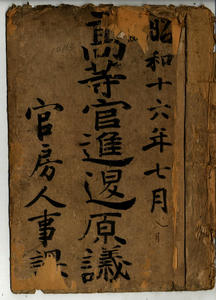 昭和十六年七月
高等官進退原議
官房人事課